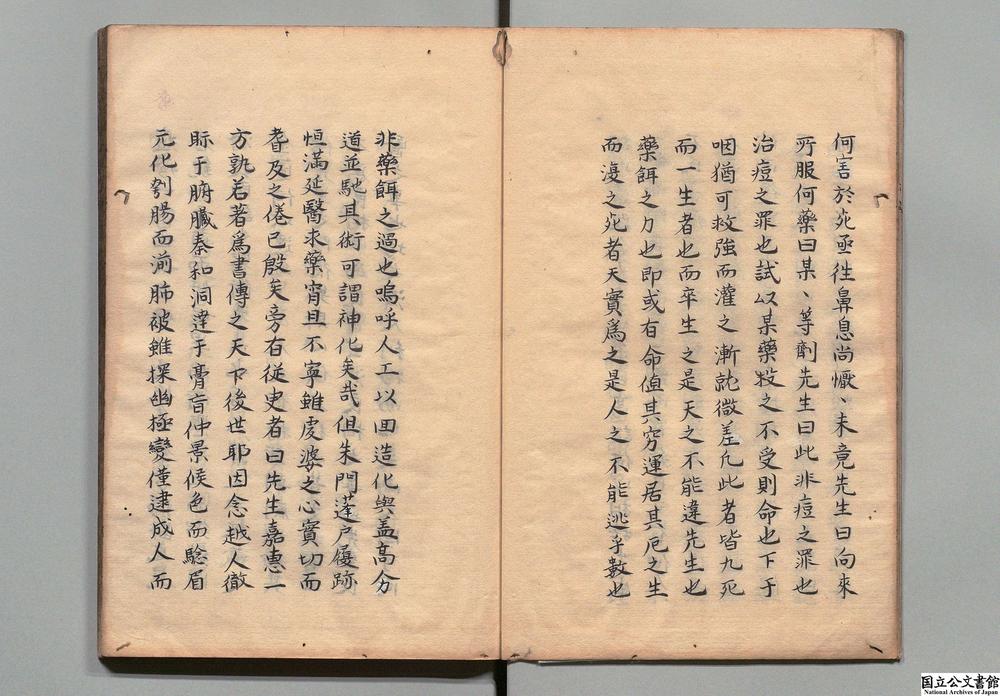 何害於死亟往鼻息尚慨、未竟先生曰向來
所服何藥曰某、等劑先生曰此非痘之罪也
治痘之罪也試以某藥投之不受則命也下于
咽猶可救強而灌之漸就微差凡此者皆九死
而一生者也而卒生之是天之不能違先生也
藥餌之力也即或有命值其窮運居其厄之生
而漫之死者天實為之是人之不能逃乎數也
非藥餌之過也嗚呼人工以回造化與盖高分
道並馳其術可謂神化矣哉但朱門蓬戶屨跡
恒滿延醫求藥宵旦不寧雖虔婆之心實切而
耆及之倦已殷矣旁有從史者曰先生嘉惠一
方孰若著為書傳之天下後世耶因念越人徹
眎于腑臟秦和洞達于膏肓仲景候色而驗眉
元化刳腸而湔肺彼雖探幽極變僅逮成人而
国立公文書館
National Archives of Japan